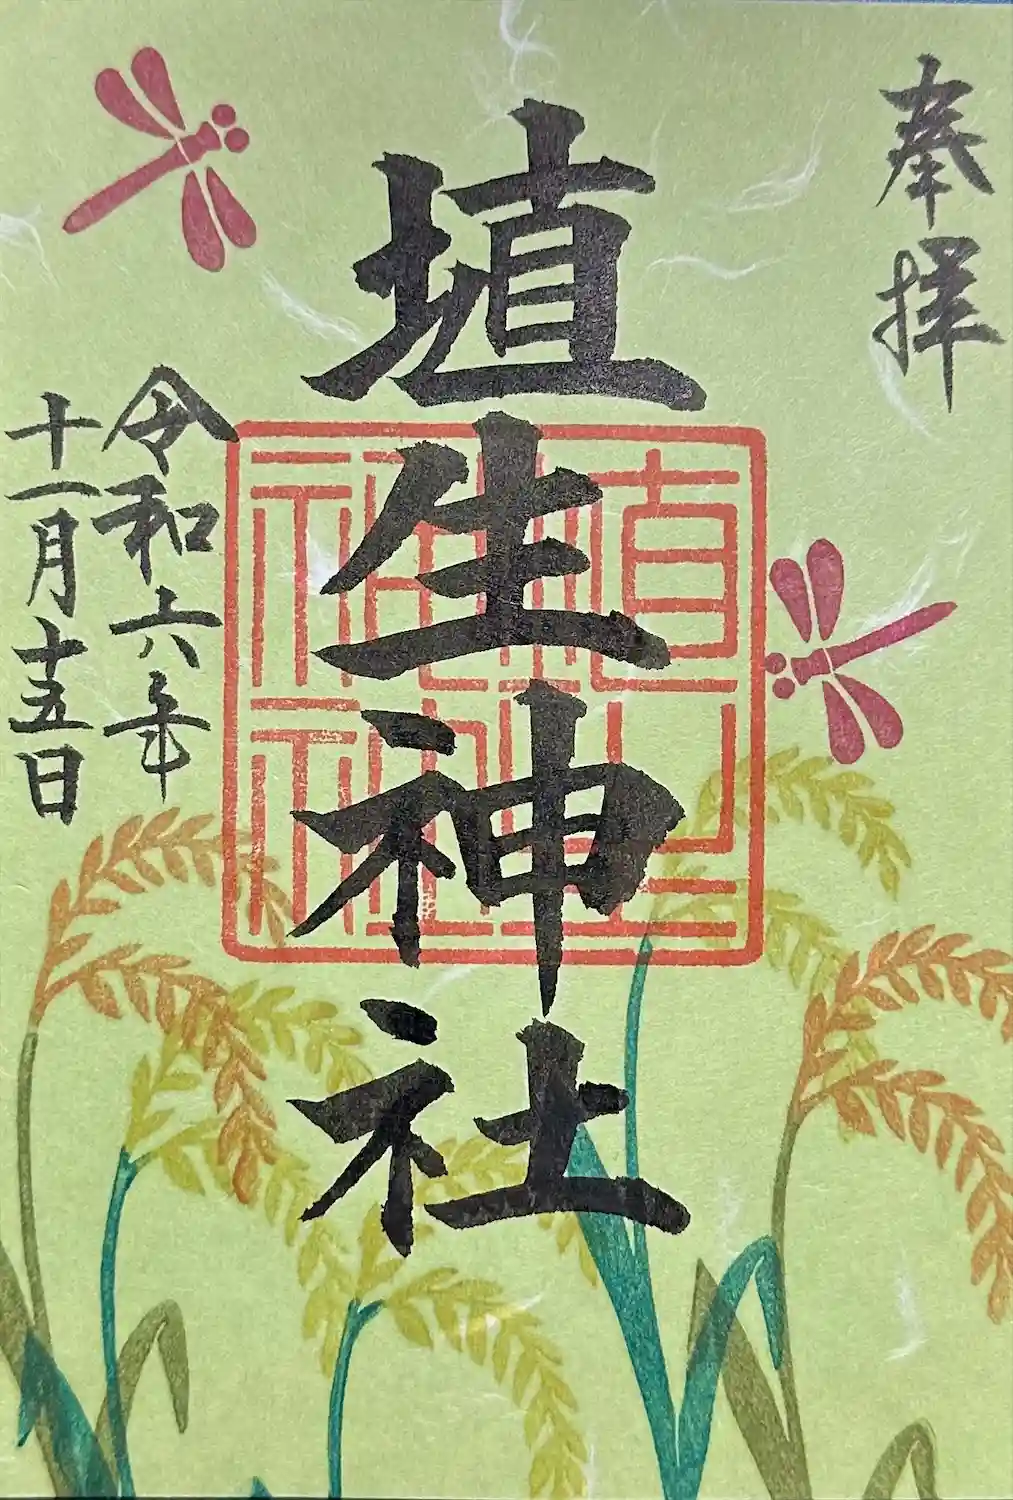 奉拝
埴生神社
埴生神社
令和六年
十一月十五日